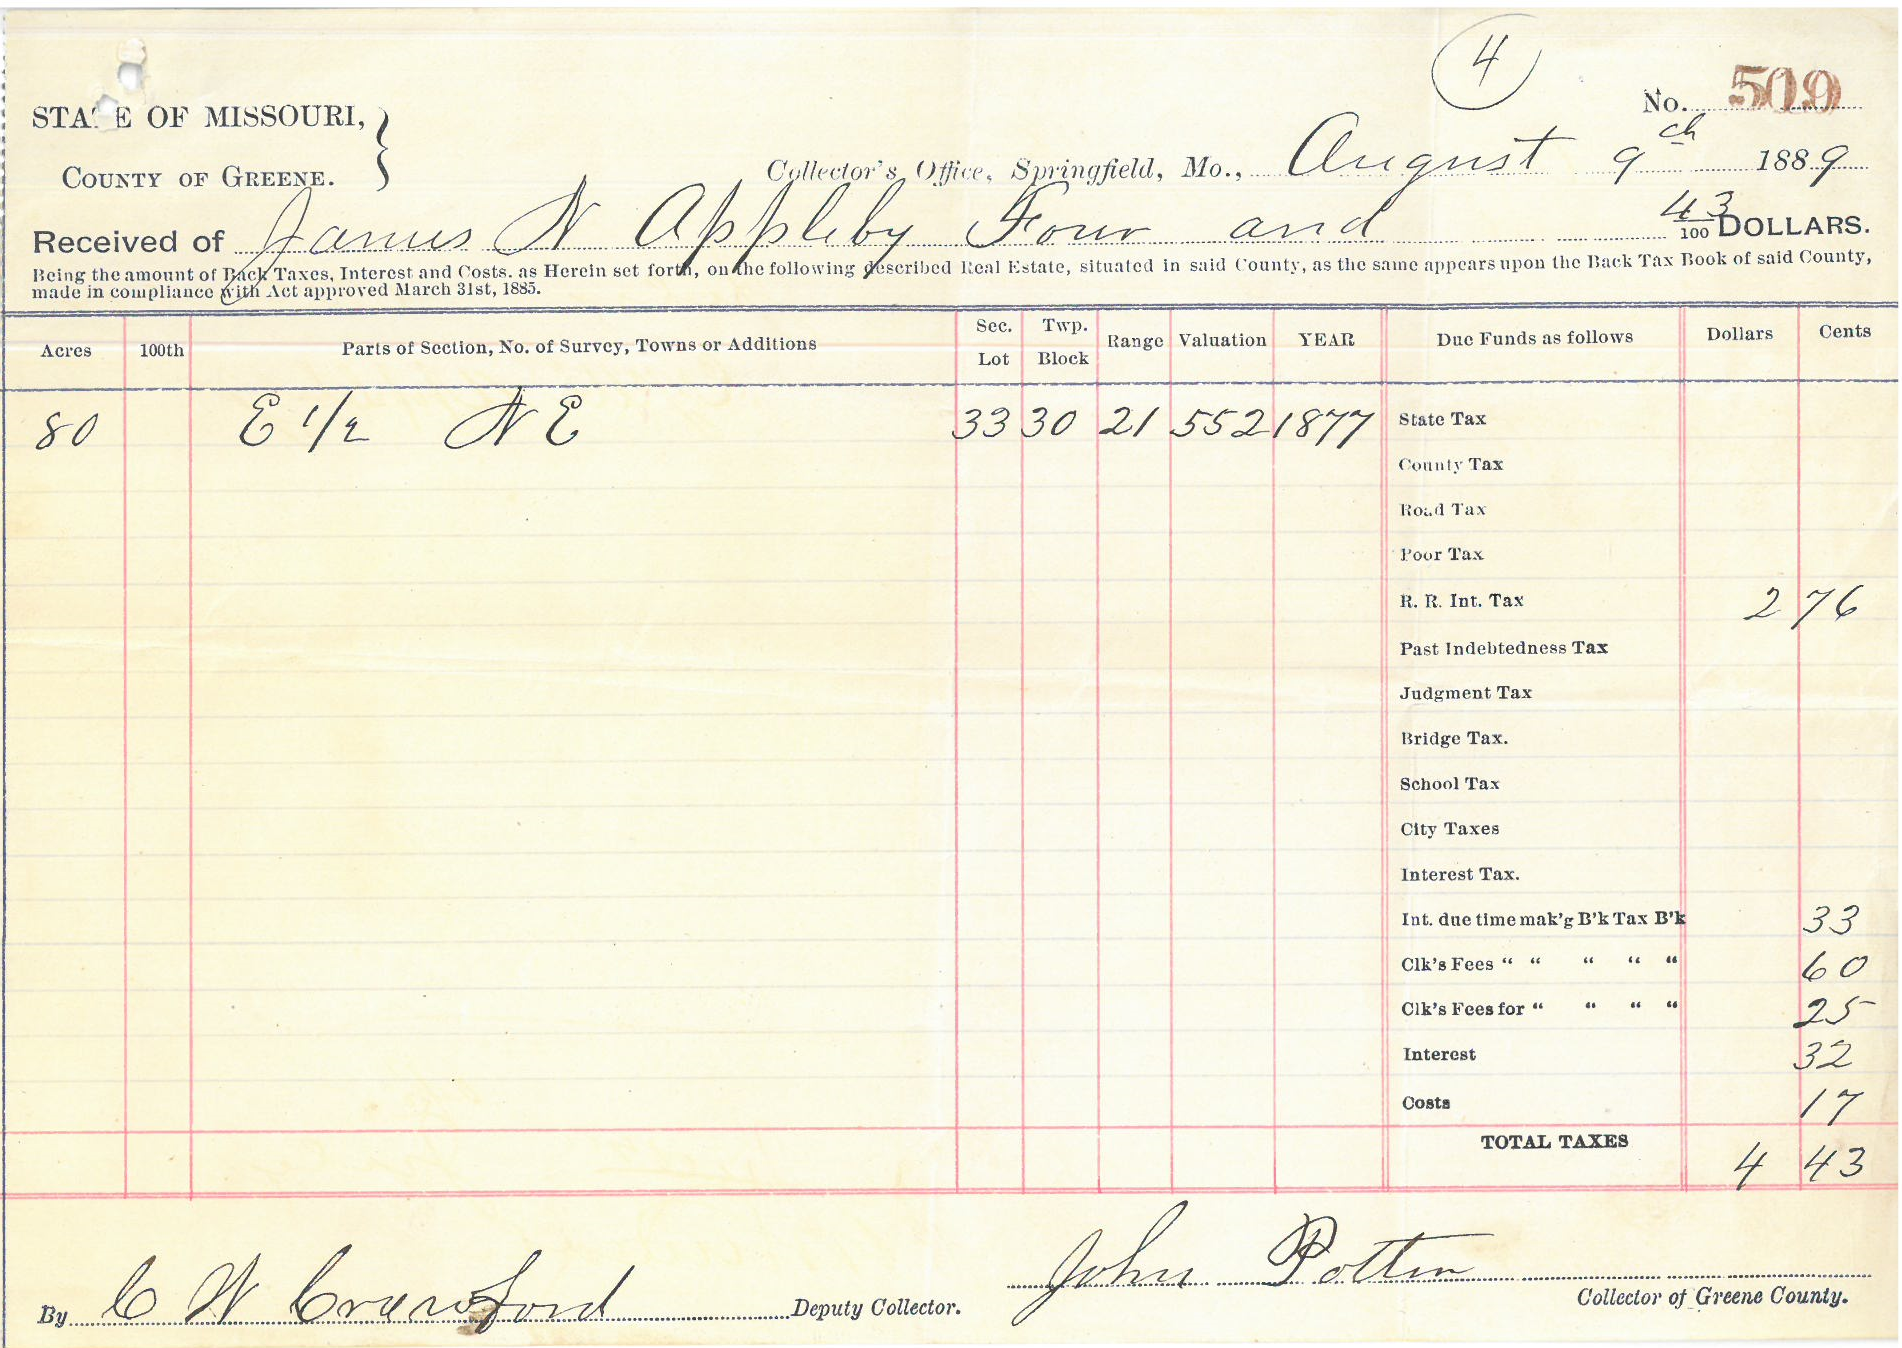 4
No. 509
STATE OF MISSOURI,
COUNTY OF GREENE.
Collector's Office, Springfield, Mo., August 9th 1889
Received of James N Appleby Four and 43/100 DOLLARS.
Being the amount of Back Taxes, Interest and Costs. as Herein set forth, on the following described Real Estate, situated in said County, as the same appears upon the Back Tax Book of said County,
made in compliance with Act approved March 31st, 1885.
Acres 100th Parts of Section, No. of Survey, Towns or Additions Sec. Lot Twp. Block Range Valuation YEAR Due Funds as follows Dollars Cents
80 E 1/2 N E 33 30 21 552 1877 State Tax
County Tax
Road Tax
Poor Tax
R. R. Int. Tax 2 76
Past Indebtedness Tax
Judgment Tax
Bridge Tax.
School Tax
City Taxes
Interest Tax.
Int. due time mak'g B'k Tax B'k 33
Clk's Fees “ “ “ “ “ 60
Clk's Fees for “ “ “ “ 25
Interest 32
Costs 17
TOTAL TAXES 4 43
John Potter
Collector of Greene County.
By C W Crawford Deputy Collector.